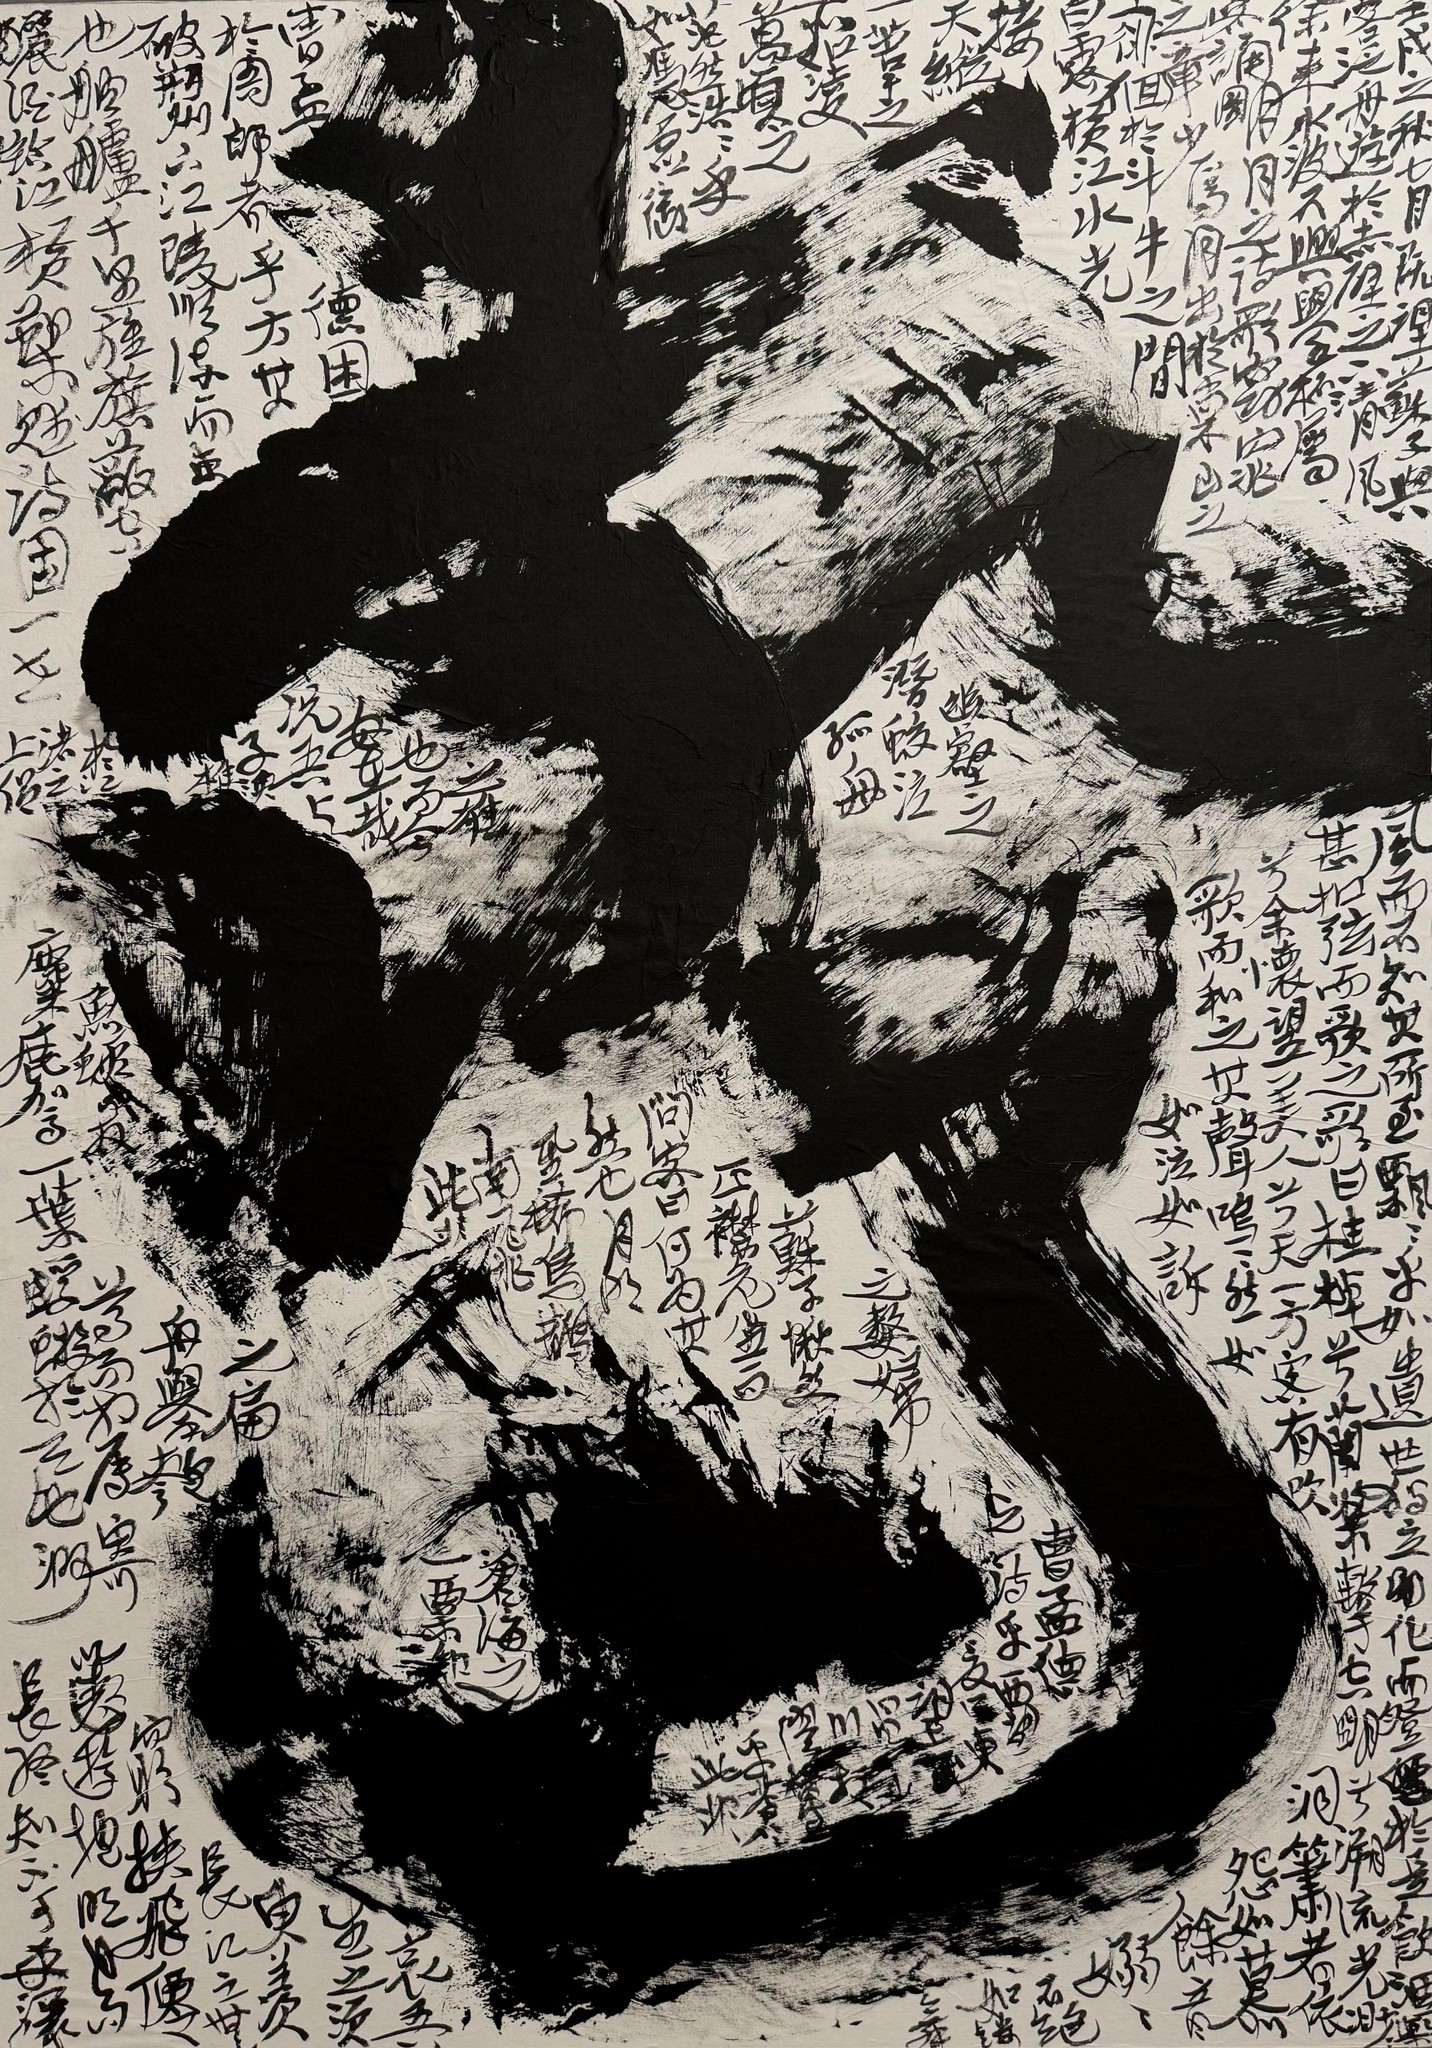 壬戌之秋七月既望蘇子與
客泛舟遊於赤壁之下清風
徐來水波不興舉酒屬
客誦明月之詩歌窈窕
之章少焉月出於東山之
上徘徊於斗牛之間
白露橫江水光
接
天縱
一葦之
所如凌
萬頃之
茫然浩浩乎
如馮虛御
風而不知其所至飄飄乎如遺世獨立羽化而登僊於是飲酒樂
甚扣弦而歌之歌曰桂棹兮蘭槳擊空明兮溯流光渺渺
兮余懷望美人兮天一方客有吹洞簫者依
歌而和之其聲嗚嗚然如怨如慕
如泣如訴餘音
嫋嫋
不絕
如縷
舞
幽壑之
潛蛟泣
孤舟
之嫠婦
蘇子愀然
正襟危坐而
問客曰何為其
然也月明
星稀烏鵲
南飛
此非
曹孟德
之詩乎西望
夏口東
望
山川
相
繆
鬱
乎蒼
此非
孟
德困
於周師者乎方其
破荊州下江陵順流而東
也舳艫千里旌旗蔽空
釃酒臨江橫槊賦詩固一世
之雄
也而今
安在哉
況吾與
子漁
樵
於江
渚之
上侶
魚蝦而友
麋鹿駕一葉
之扁
舟舉匏
尊而相屬寄
蜉蝣於天地渺
滄海之
一粟
哀吾
生之須
臾羨
長江之無
窮挾飛僊
以遨遊抱明月而
長終知不可乎驟